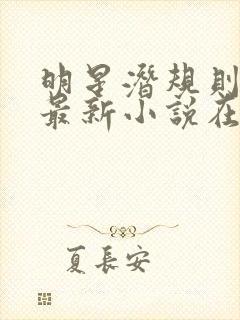 明星潛規則
最新小說在
夏長安